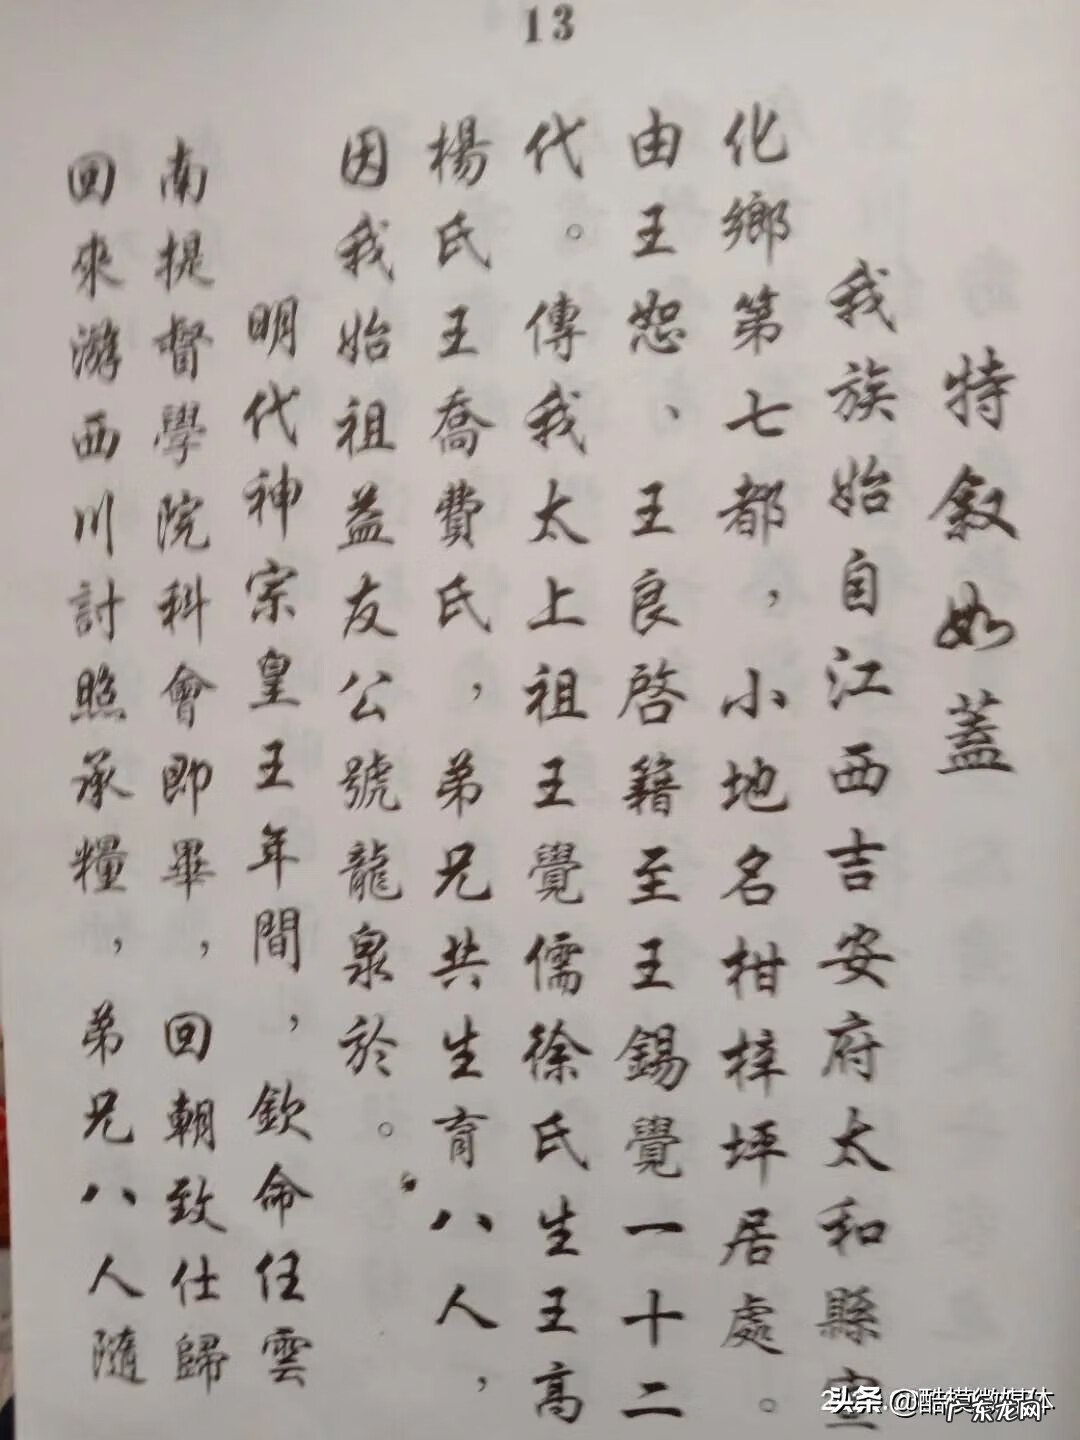 13
特敘如蓋
我族始自江西吉安府太和縣宣
化鄉第七都，小地名柑梓坪居處。
由王恕、王良啓籍至王錫覺一十二
代。傳我太上祖王覺儒徐氏生王高
楊氏王喬費氏，弟兄共生育八人，
因我始祖益友公號龍泉於。
明代神宗皇王年間，欽命任雲
南提督學院科會即畢，回朝致仕歸
回來游西川討照承糧，弟兄八人隨
头条 @酷模微媒体
广东龙网